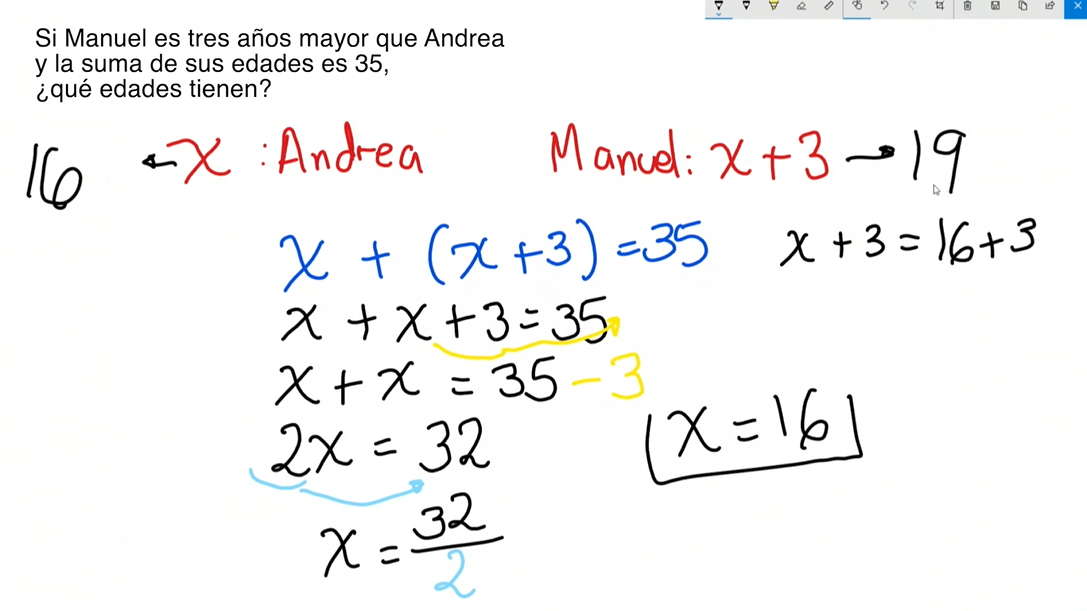 Si Manuel es tres años mayor que Andrea
y la suma de sus edades es 35,
¿qué edades tienen?
16 ← x : Andrea
Manuel: x + 3 → 19
x + (x + 3) = 35
x + 3 = 16 + 3
x + x + 3 = 35
x + x = 35 - 3
2x = 32
x = 16
x = 32/2